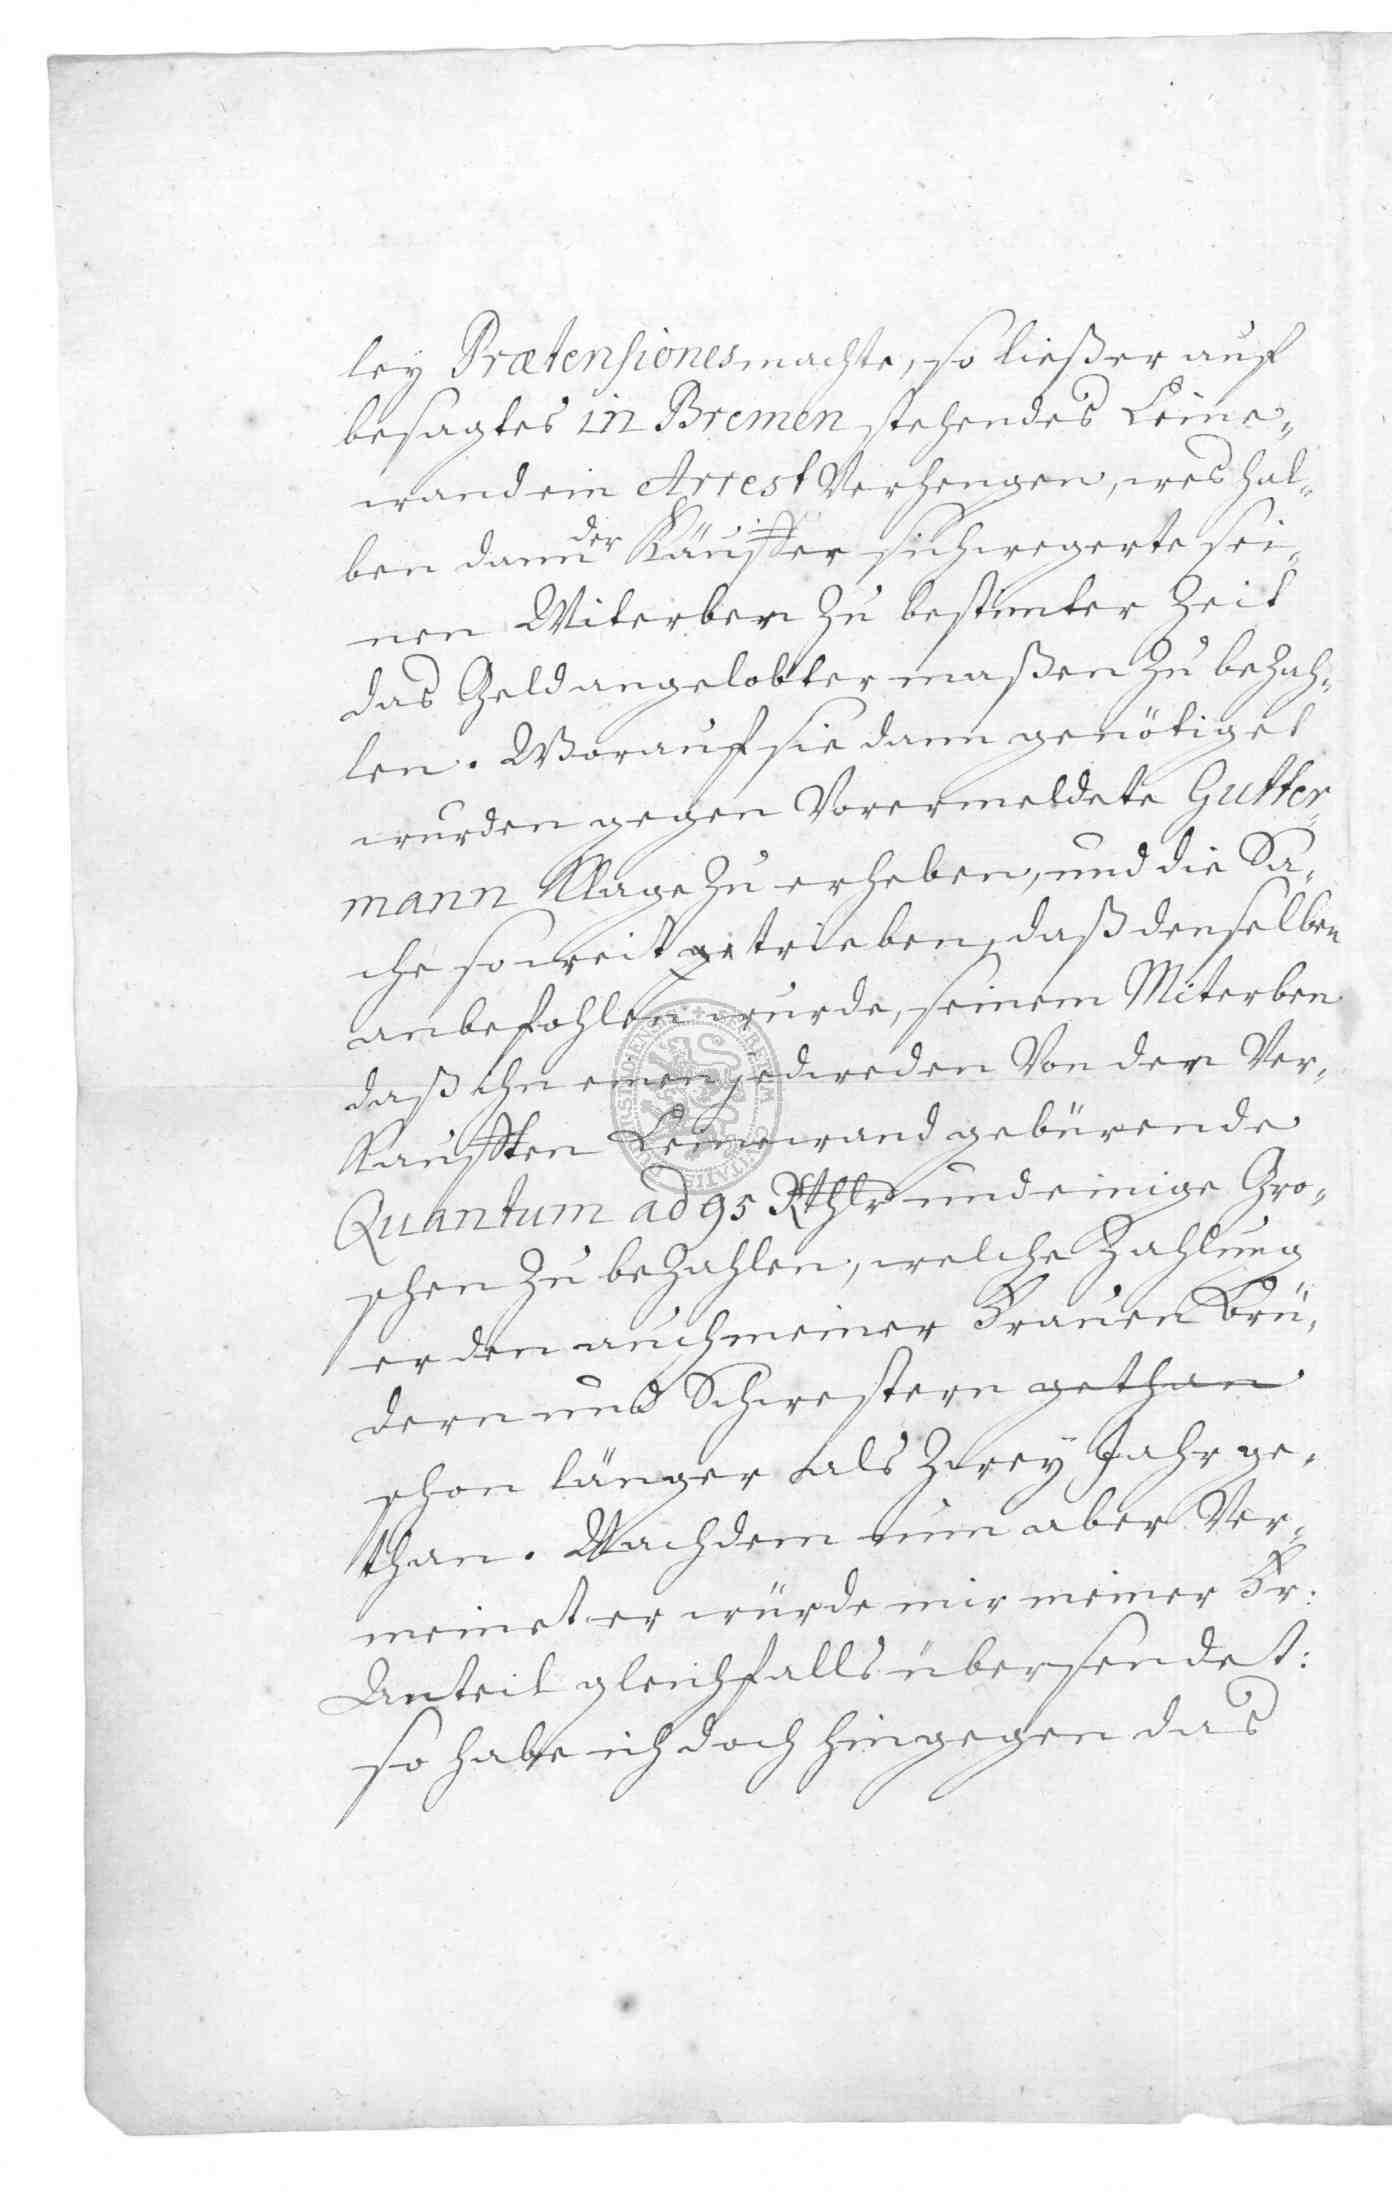 ley Prætensiones machte, so ließ er auf
besagtes in Bremen stehendes Leine„
wand ein Arrest Verhengen, weshal„
ben dann der Käuffer sich wegerte sei„
nen Miterben zu bestimter Zeit
das Geld angelobter maßen zu bezah„
len. Worauf sie dann genötiget
wurden gegen Vorermeldete Gutter„
mann Klage zu erheben, und die Sa„
che so weit getrieben, daß denselben
anbefohlen wurde, seinem Miterben
daß ihn einen jedweden Von der Ver„
Kaufften Leinewand gebürende
Quantum ad 95 Rthlr und einige Gro„
schen zu bezahlen, welche Zahlung
er den auch meiner Frauen Brü„
dern und Schwestern gethan
schon länger als Zwey Jahr ge„
than. Nachdem nun aber Ver„
meinet er würde mir meiner Fr:
Anteil gleichfalls übersendet:
so habe ich doch hingegen das